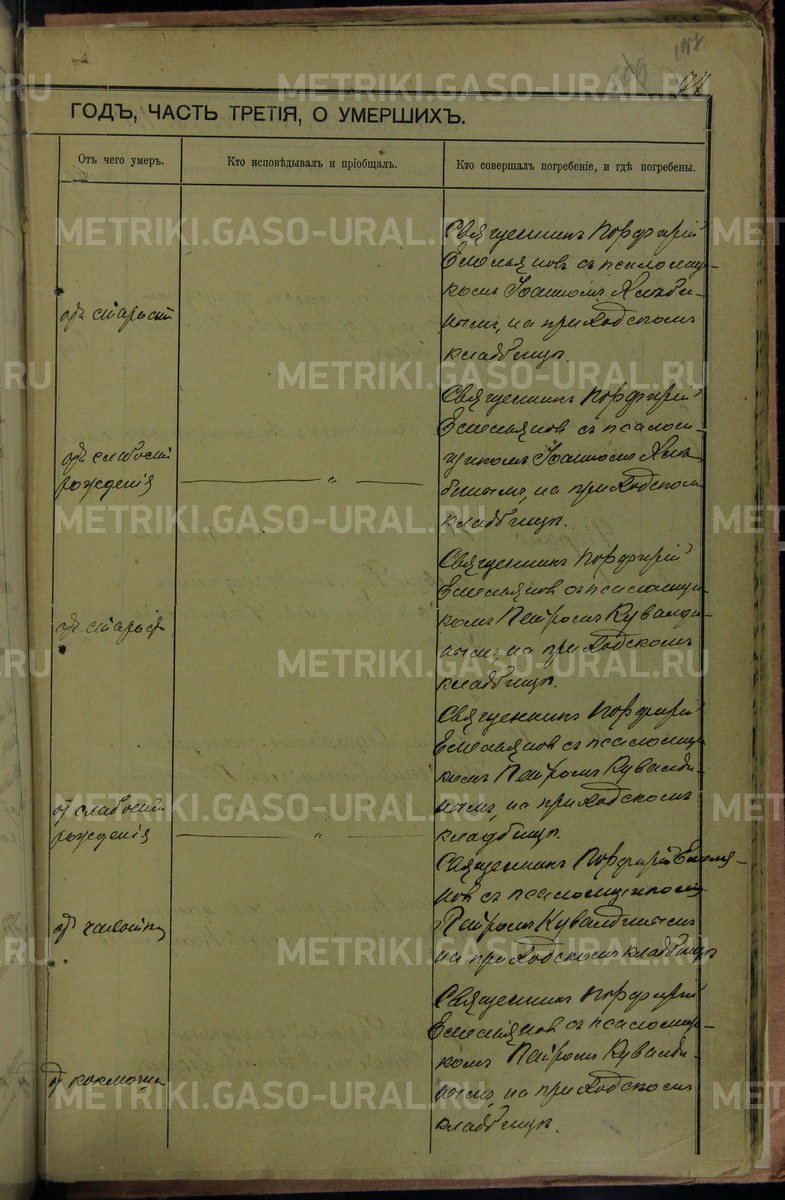 107
94
ГОДЪ, ЧАСТЬ ТРЕТІЯ, О УМЕРШИХЪ.
Отъ чего умеръ.
Кто исповѣдывалъ и пріобщалъ.
Кто совершалъ погребеніе, и гдѣ погребены.
отъ старости
Священникъ Порфирій
Емельяновъ съ псаломщи-
комъ Іоанномъ
на приходскомъ
кладбищѣ.
отъ слабости
рожденія
"
Священникъ Порфирій
Емельяновъ съ псалом-
щикомъ Іоанномъ
на приходскомъ
кладбищѣ.
отъ старости
Священникъ Порфирій
Емельяновъ съ псаломщи-
комъ Петромъ Кувалди-
нымъ, на приходскомъ
кладбищѣ.
отъ слабости
рожденія
"
Священникъ Порфирій
Емельяновъ съ псаломщи-
комъ Петромъ Кувалди-
нымъ, на приходскомъ
кладбищѣ.
отъ чахотки
Священникъ Порфирій Емелья-
новъ съ псаломщикомъ
Петромъ Кувалдинымъ
на приходскомъ кладбищѣ
отъ
Священникъ Порфирій
Емельяновъ съ псаломщи-
комъ Петромъ Кувалди-
нымъ, на приходскомъ
кладбищѣ.
METRIKI.GASO-URAL.RU